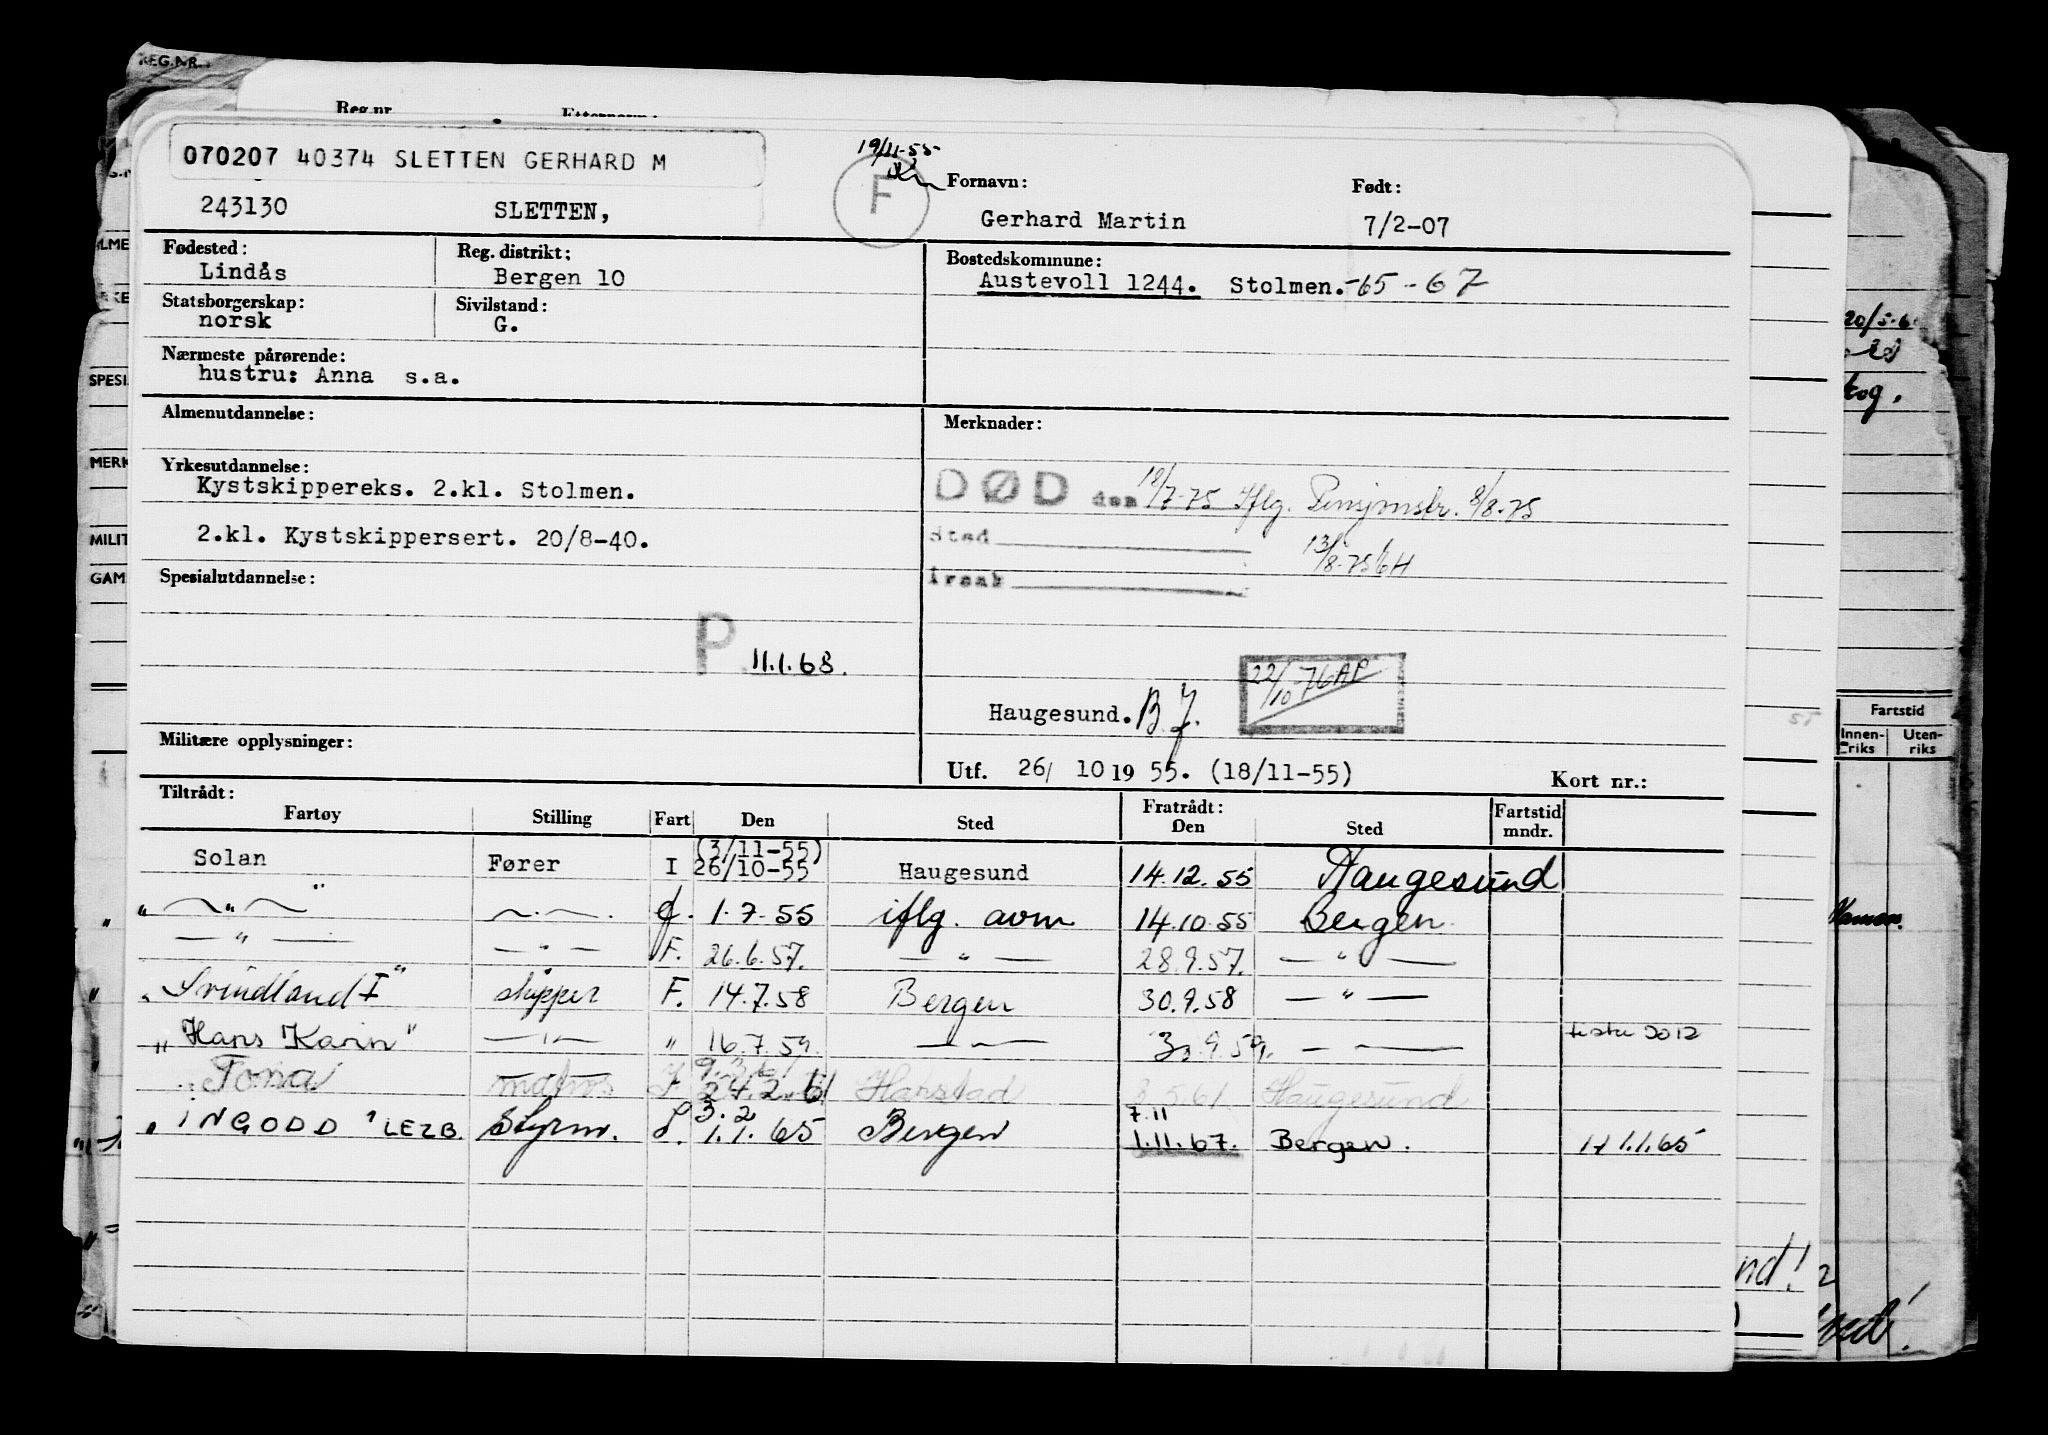 REG.NR.
Reg.nr.
070207 40374 SLETTEN GERHARD M
19/11-55
F
Fornavn: Født:
243130 SLETTEN, Gerhard Martin 7/2-07
Fødested: Reg. distrikt: Bostedskommune:
Lindås Bergen 10 Austevoll 1244. Stolmen.-65-67
Statsborgerskap: Sivilstand:
norsk G.
Nærmeste pårørende:
hustru: Anna s.a.
Almenutdannelse: Merknader:
Yrkesutdannelse:
Kystskippereks. 2.kl. Stolmen.
DØD den 18/7-75 Iflg. Pensjonstr. 8/8-75
2.kl. Kystskippersert. 20/8-40.
Sted
13/8-75
Årsak
Spesialutdannelse:
P 11.1.68.
22/10-76 AP
Haugesund. B.J.
Militære opplysninger:
Utf. 26/ 10 19 55. (18/11-55) Kort nr.:
Tiltrådt: Fratrådt:
Fartøy Stilling Fart Den Sted Den Sted Fartstid mndr.
(3/11-55)
Solan Fører I 26/10-55 Haugesund 14.12.55 Haugesund
" — " — — " — f. 1.7.55 iflg. avm 14.10.55 Bergen
— " — — " — F. 26.6.57. — " — 28.9.57. — " —
"Svindland I" skipper F. 14.7.58 Bergen 30.9.58 — " —
"Hans Karin" — " — " 16.7.59. — " — 30.9.59. — " —
9.3.61
"Tona" matros F 24.2.61 Harstad 3.5.61 Haugesund
3.2 7.11
"INGODD" LEZB. Styrm. S. 1.1.65 Bergen 1.11.67. Bergen. H 1.1.65
SPESI
MERK
MILIT
GAM
20/5-6
tog.
Fartstid
Innenriks Utenriks
nd!